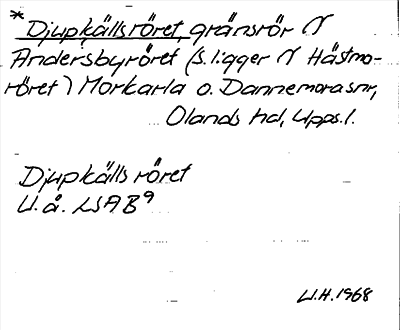 * Djupkällsröret, gränsrör N
Andersbyröret (s. ligger N Hästmo-
röret) Morkarla o. Dannemora snr,
Olands hd, Upps. l.
Djupkällsröret
U.å. LSA B9
U.H. 1968